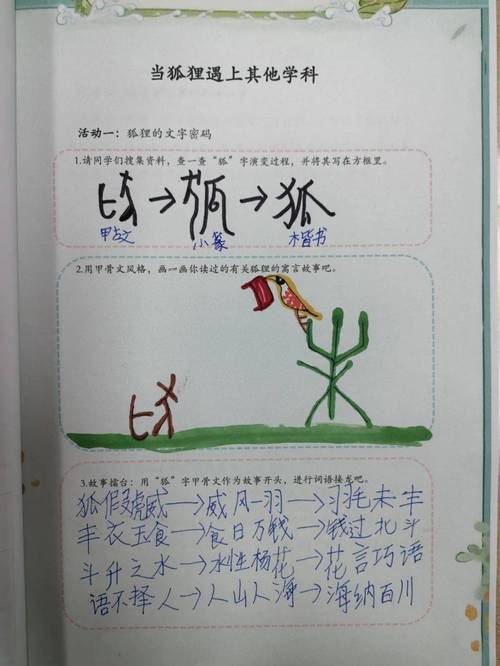 当狐狸遇上其他学科
活动一：狐狸的文字密码
1.请同学们搜集资料，查一查“狐”字演变过程，并将其写在方框里。
→ → 狐
甲古文 小篆 楷书
2.用甲骨文风格，画一画你读过的有关狐狸的寓言故事吧。
3.故事擂台：用“狐”字甲骨文作为故事开头，进行词语接龙吧。
狐假虎威→威风一羽→羽毛未丰
丰衣玉食→食日万钱→钱过北斗
斗升之水→水性杨花→花言巧语
语不择人→人山人海→海纳百川